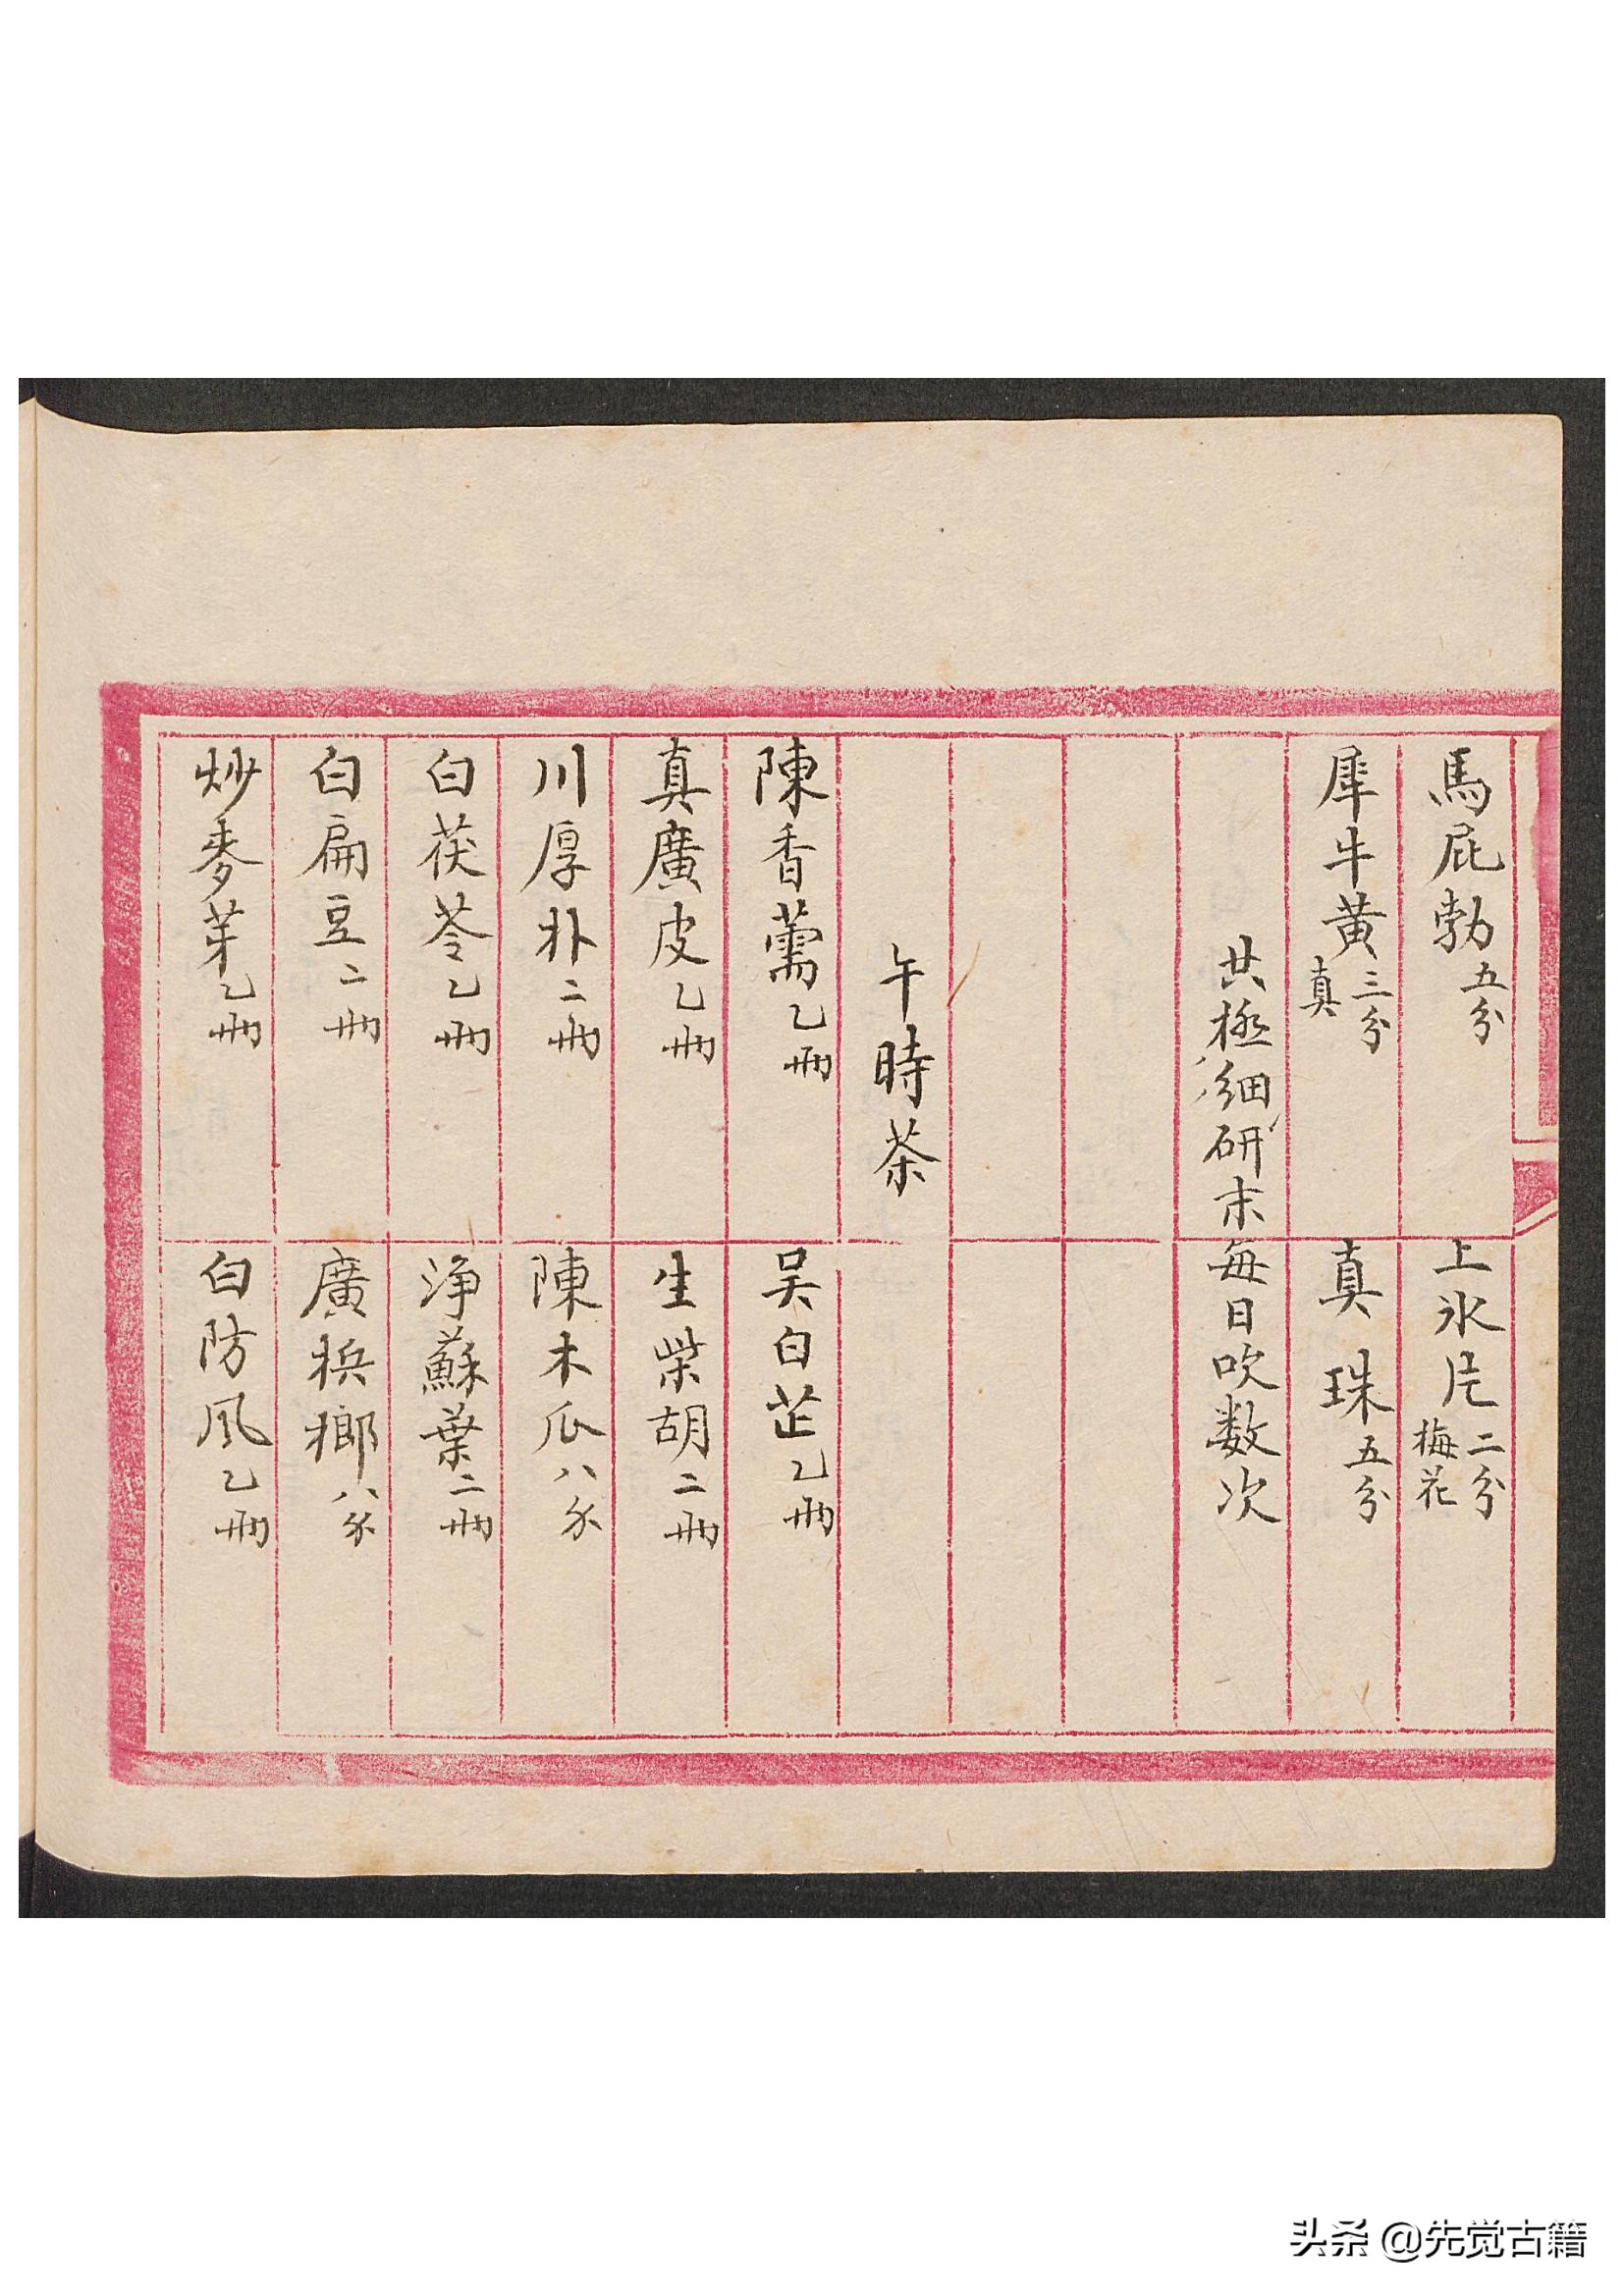 馬屁勃五分
上氷片二分梅花
犀牛黄三分真
真珠五分
共極細研末每日吹数次
午時茶
陳香薷乙両
吴白芷乙両
真廣皮乙両
生柴胡二両
川厚朴二両
陳木瓜八分
白茯苓乙両
淨蘇葉二両
白扁豆二両
廣梹榔八分
炒麥芽乙両
白防风乙両
头条 @先觉古籍